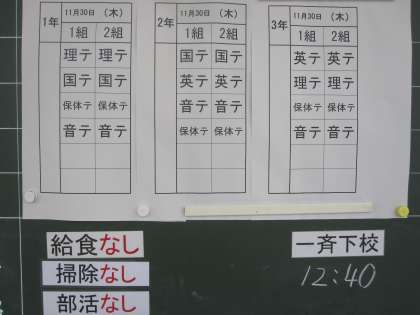 1年 11月30日 (木)
1組 2組
理テ 理テ
国テ 国テ
保体テ 保体テ
音テ 音テ
2年 11月30日 (木)
1組 2組
国テ 国テ
英テ 英テ
音テ 音テ
保体テ 保体テ
3年 11月30日 (木)
1組 2組
英テ 英テ
理テ 理テ
音テ 音テ
音テ 音テ
給食なし
掃除なし
部活なし
一斉下校
12:40